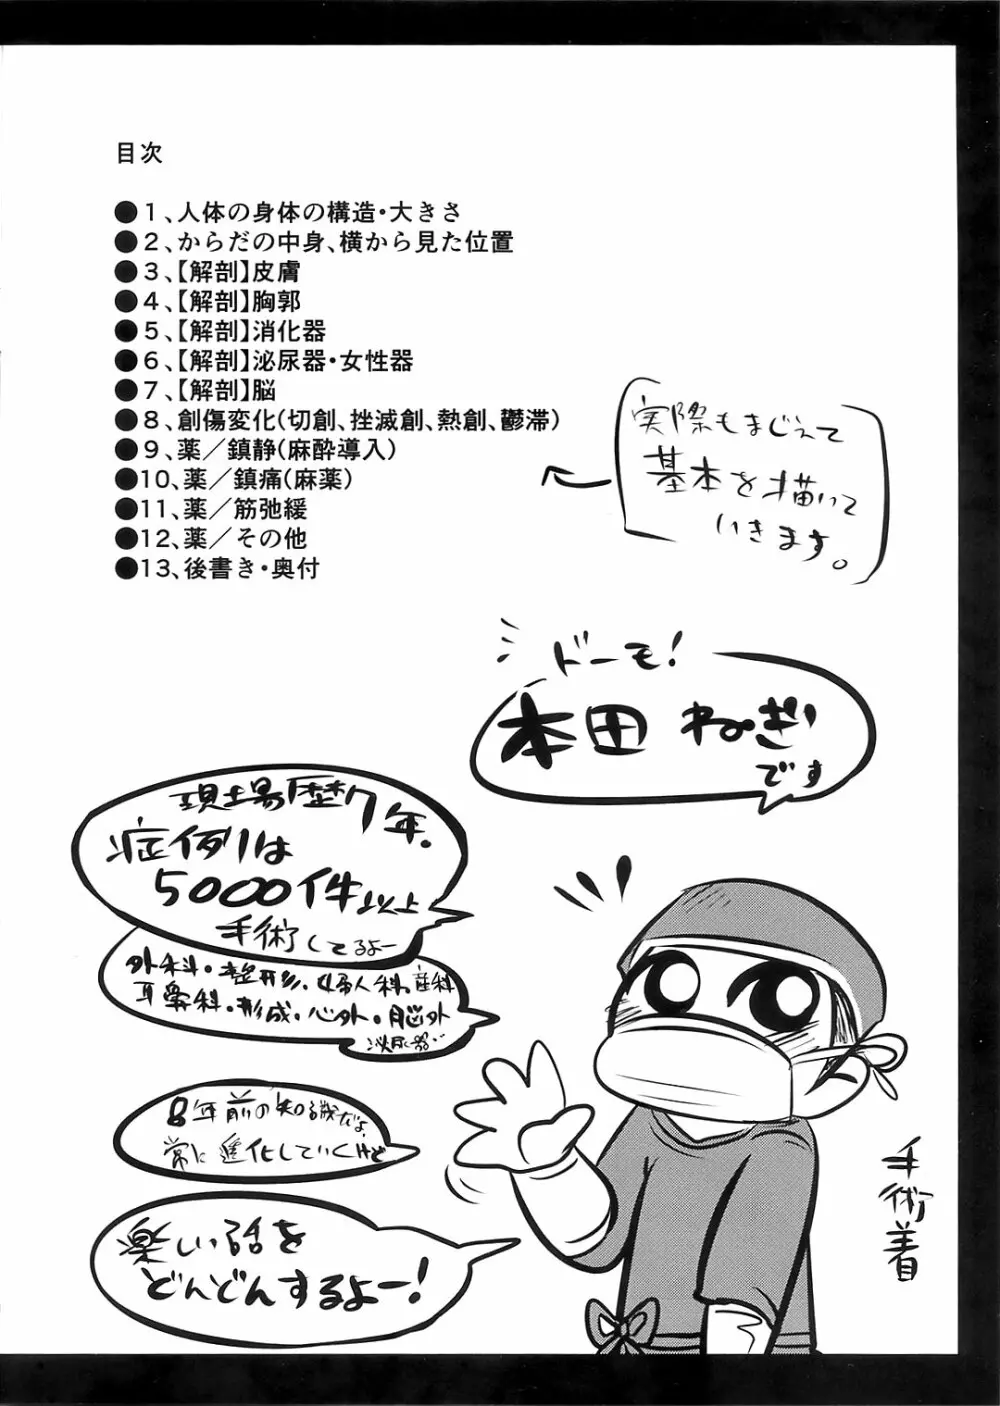 目次
●1、人体の身体の構造・大きさ
●2、からだの中身、横から見た位置
●3、【解剖】皮膚
●4、【解剖】胸郭
●5、【解剖】消化器
●6、【解剖】泌尿器・女性器
●7、【解剖】脳
●8、創傷変化(切創、挫滅創、熱創、鬱滞)
●9、薬／鎮静(麻酔導入)
●10、薬／鎮痛(麻薬)
●11、薬／筋弛緩
●12、薬／その他
●13、後書き・奥付
実際もまじえて
基本を描いて
いきます。
ドーモ!
本田 ねぎ
です
現場歴7年。
症例は
5000件以上
手術してるよー
外科・整形、婦人科、産科
耳鼻科・形成・心外・脳外
泌尿器…
8年前の知識だよ
常に進化していくけど
楽しい話を
どんどんするよー!
手術着